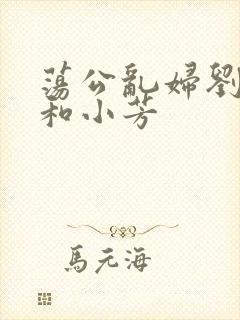 蕩公亂婦劉
和小芳
馬元海